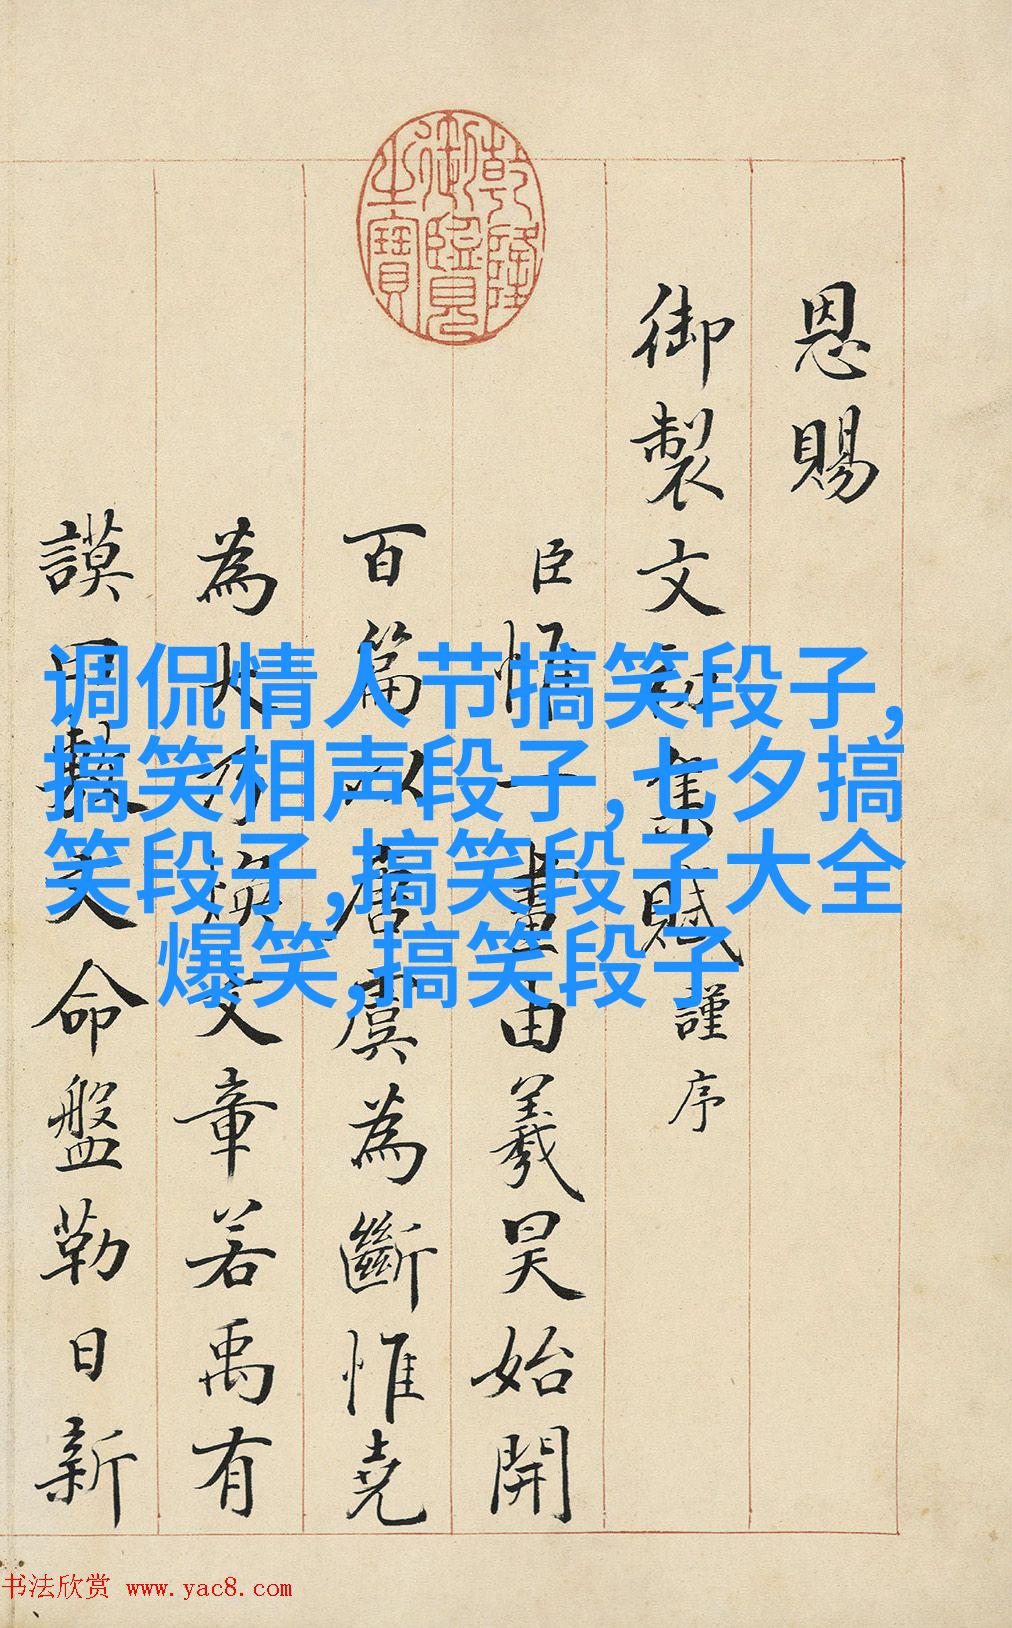 恩賜
御製文初集賦謹序
臣惟一畫由羲昊始開
百篇以唐虞為斷惟堯
為大乃煥文章若禹有
謨曰敷文命盤勒日新
乾隆御覽之寶
调侃情人节搞笑段子,
搞笑相声段子,七夕搞
笑段子,搞笑段子大全
爆笑,搞笑段子
书法欣赏 www.yac8.com